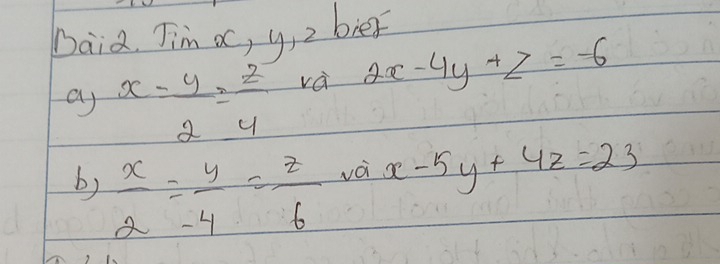 Bài 2. Tìm x, y, z biết
a) x = y/2 = z/4 và 2x - 4y + z = -6
b) x/2 = y/-4 = z/6 và x - 5y + 4z = 23